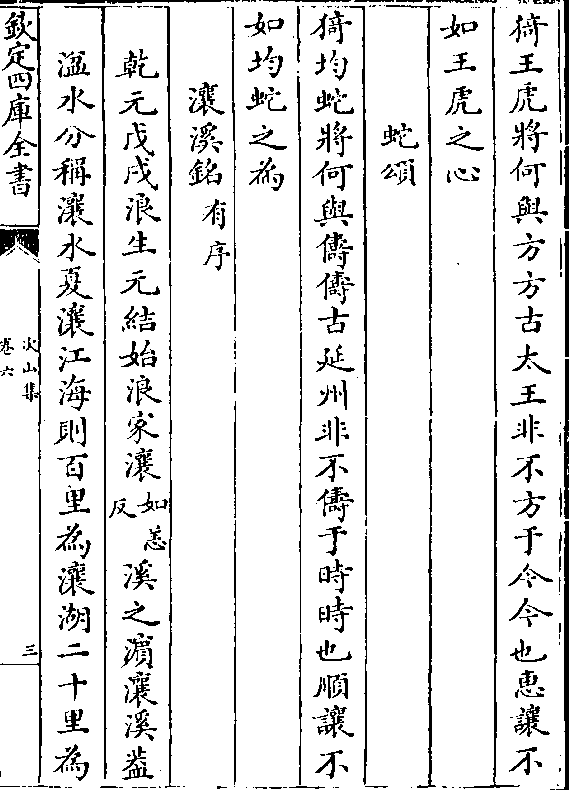 猗王虎將何與方方古太王非不方于今今也惠讓不
如王虎之心
蛇頌
猗均蛇將何與儔儔古延州非不儔于時時也順讓不
如均蛇之為
瀼溪銘有序
乾元戊戌浪生元結始浪家瀼如恙反溪之濵瀼溪葢
湓水分稱瀼水夏瀼江海則百里為瀼湖二十里為
欽定四庫全書
次山集
卷六
三